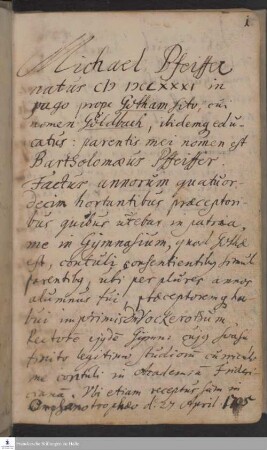 1
Michael Pfeiffer
natus CIↃ IↃCLXXXI in
pago prope Gotham sito, cui
nomen Goldbach, ibidemq edu-
catus: parentis mei nomen est
Bartholomæus Pfeiffer.
Factus annorum quatuor-
decim hortantibus præceptori-
bus quibus utebar in patria,
me in Gymnasium, quod Gothæ
est, contuli, consentientibq simul
parentibq, ubi per plures annos
alumnus fui, præceptoremq ha-
bui imprimis Vockerodtum
Rectorem ejusd. Gymn. cujq suasu
finito legitimo studiorum curriculo
me contuli in Academiam Frideri-
cianam. Ubi etiam receptus sum in
Orphanotropheo d. 27 April 1705